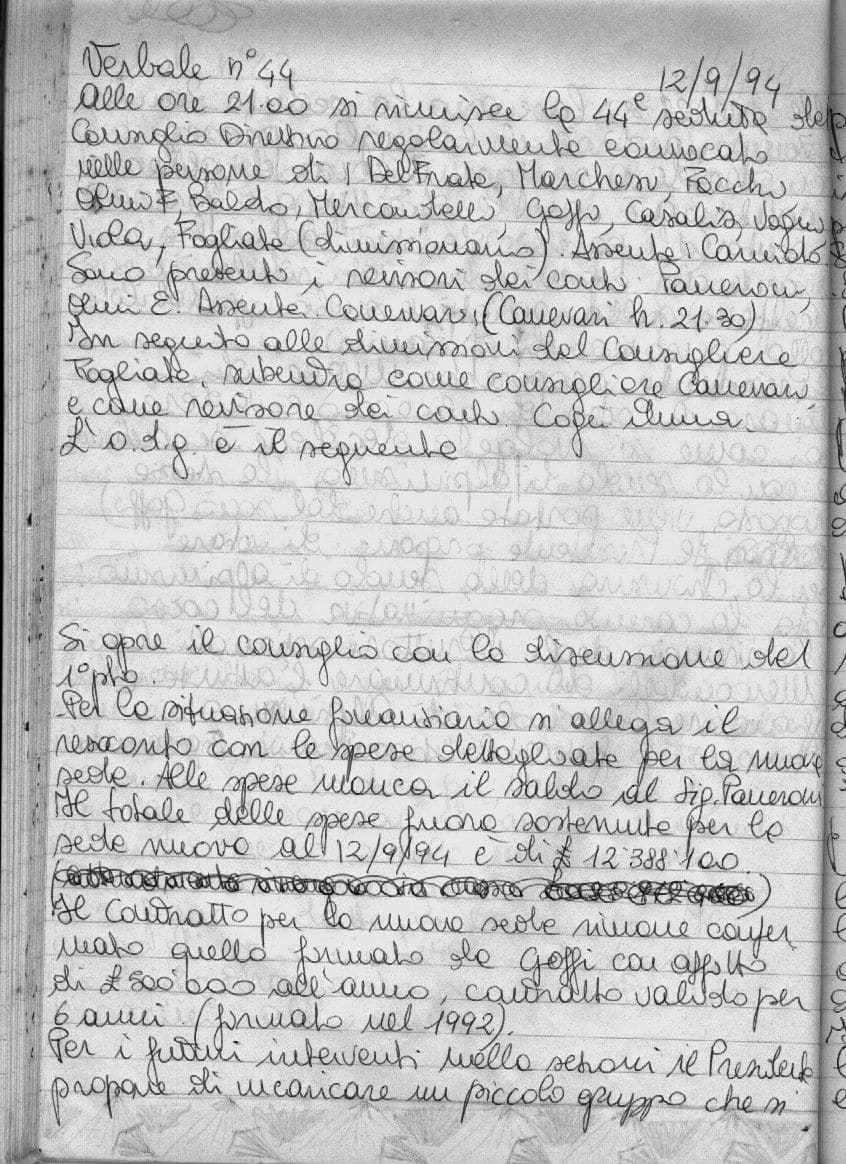 Verbale n° 44
12/9/94
Alle ore 21.00 si riunisce la 44ª seduta del
Consiglio Direttivo regolarmente convocato
nelle persone di: Del Frate, Marchesi, Focchi
Olmi F, Baldo, Mercantelli, Goffi, Casalis,
Viola, Fogliato (dimissionario). Assente:
Sono presenti i revisori dei conti Paneroni,
Olmi E. Assente Canevari, (Canevari h. 21.30)
In seguito alle dimissioni del Consigliere
Fogliato, subentra come consigliere Canevari
e come revisore dei conti Anna.
L'o.d.g. è il seguente
Si apre il consiglio con la discussione del
1° pto.
Per la situazione finanziaria si allega il
resoconto con le spese dettagliate per la nuova
sede. Alle spese manca il saldo al Sig. Paneroni
Il totale delle spese finora sostenute per la
sede nuova al 12/9/94 è di £ 12'388'100.
Il contratto per la nuova sede rimane confer
mato quello firmato da Goffi con affitto
di £ 500'000 all'anno, contratto valido per
6 anni. (firmato nel 1992).
Per i futuri interventi nella sezione il Presidente
propone di incaricare un piccolo gruppo che si